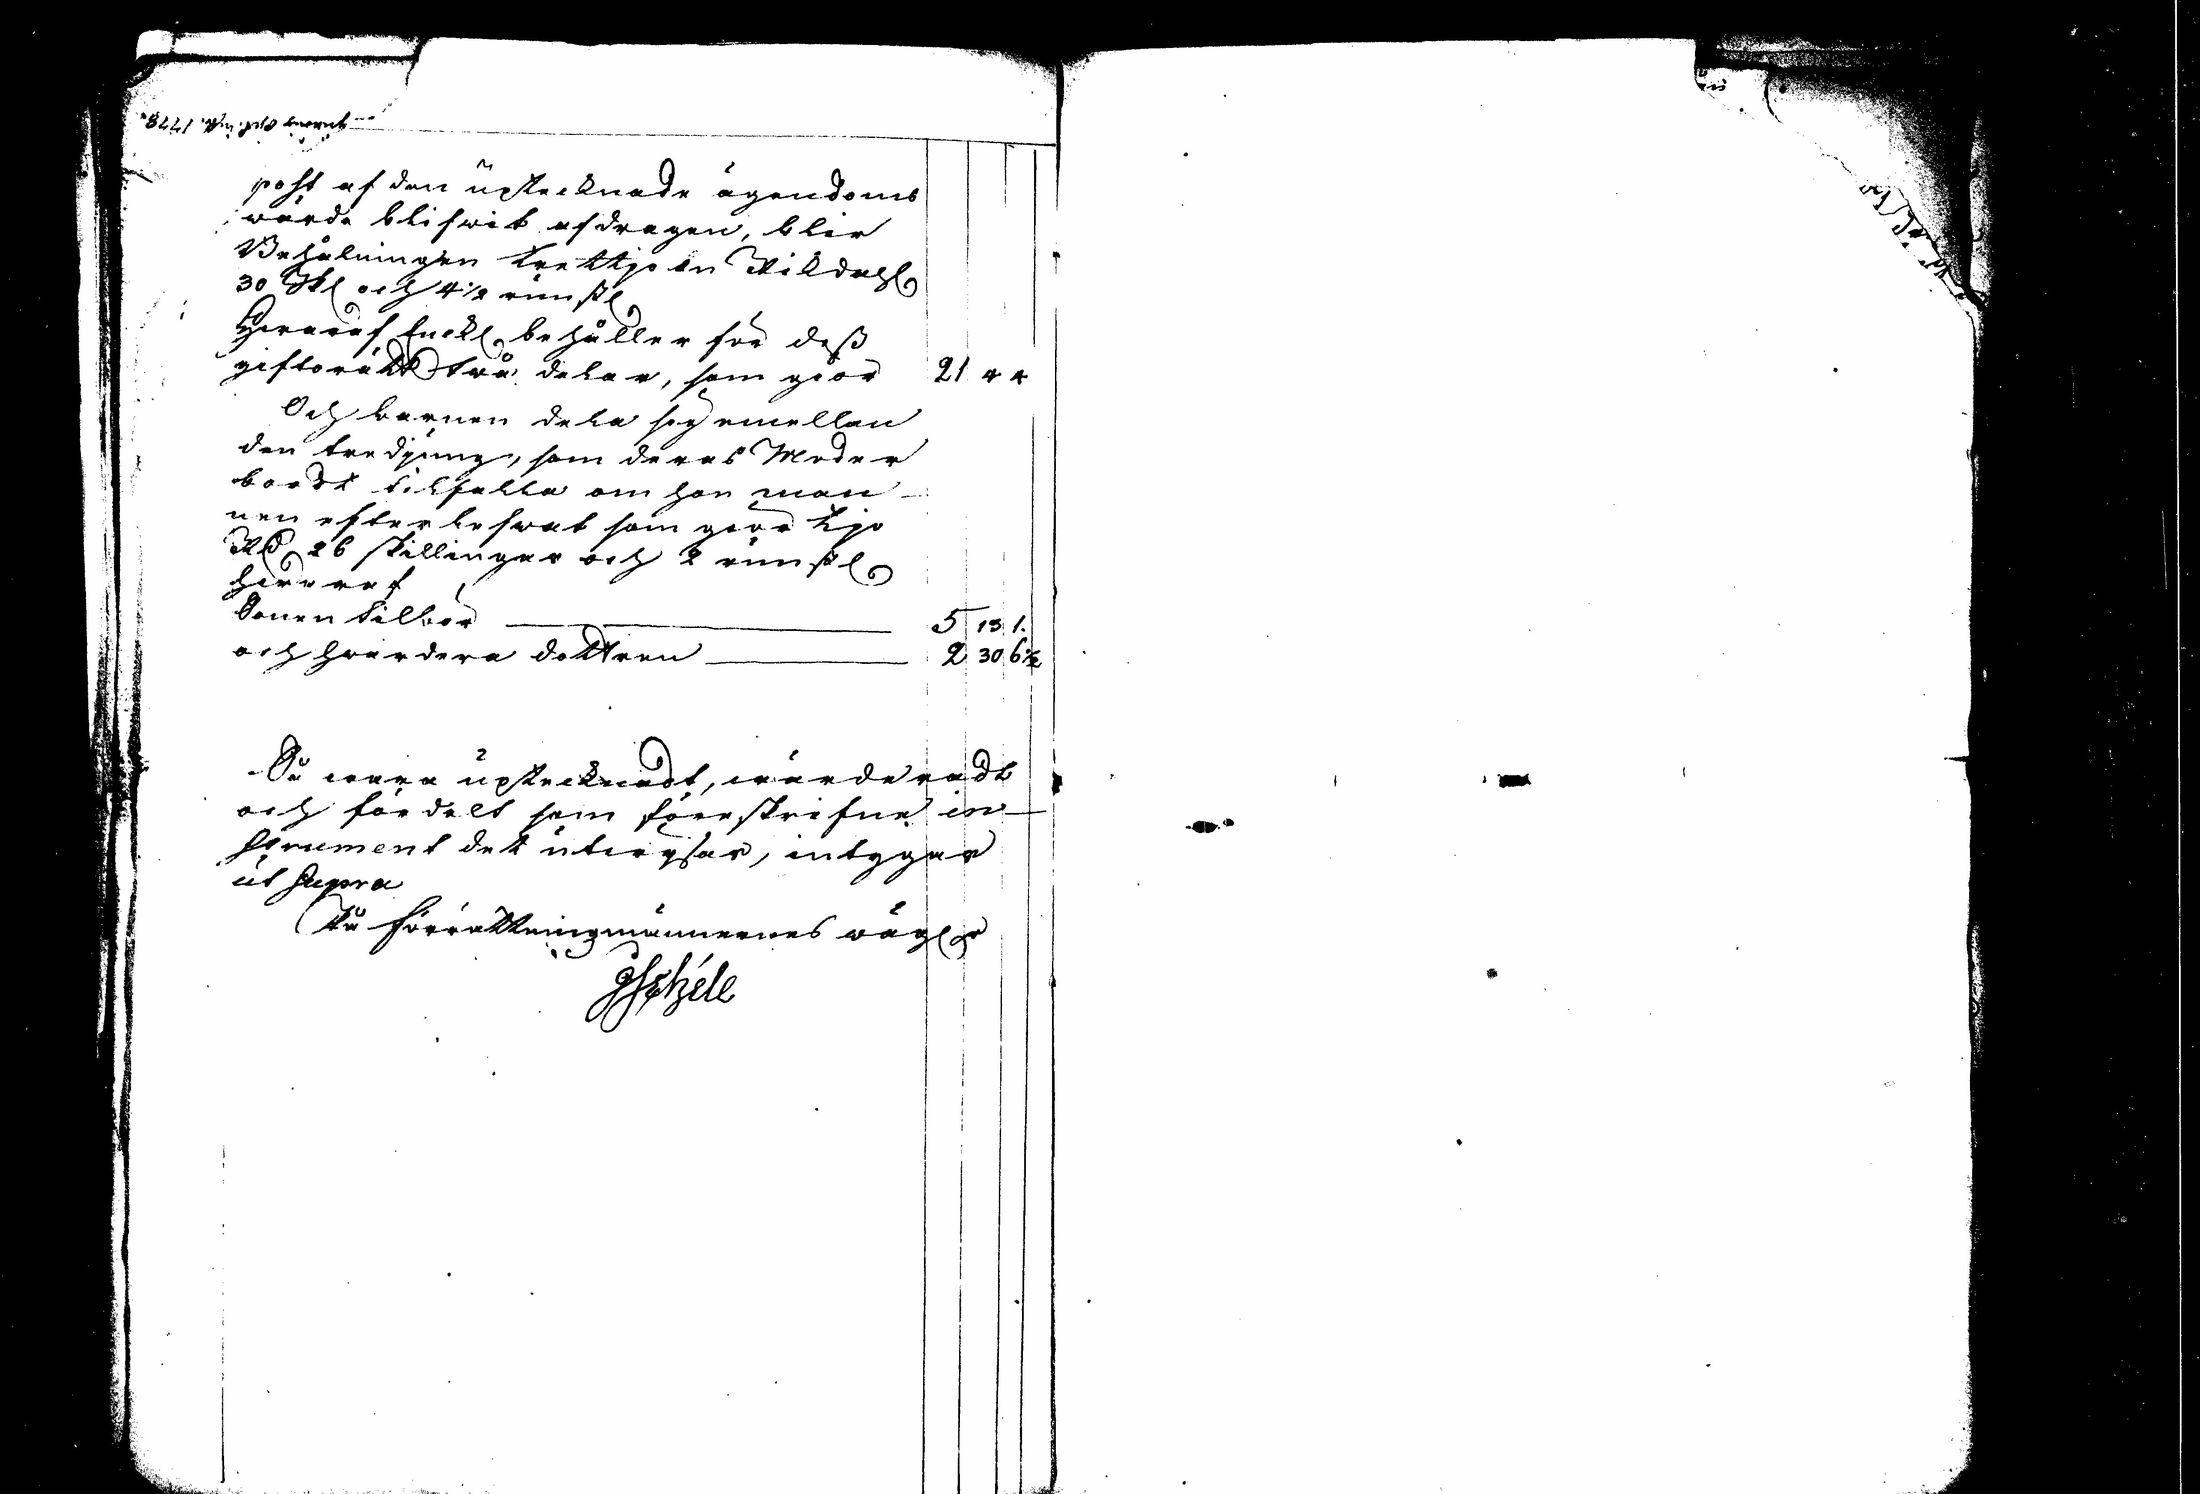 1778.
post af den uptecknade ägendoms
wärde blifwit afdragen, blir
Behålningen trettjo en Rikdahl
30 Skl och 4 1/2 runst
Heraraf Enckl behåller för dess
giftorätt två delar, som giör 21 4 4
Och barnen dela sig emellan
den tredjung, som deras Moder
bordt tilfalla om hon man
nen efterlefwat som giör tjo
Rd 26 skillingar och 2 runst
hvaraf
Sonen tilkör 5 13 1.
och hvardera dottren 2 30 6 1/2
Så wara uptecknadt, wärderadt
och fördelt som föreskrifne in
strument det utwysar, intygar
ut supra
På förrättningmännernes wägar